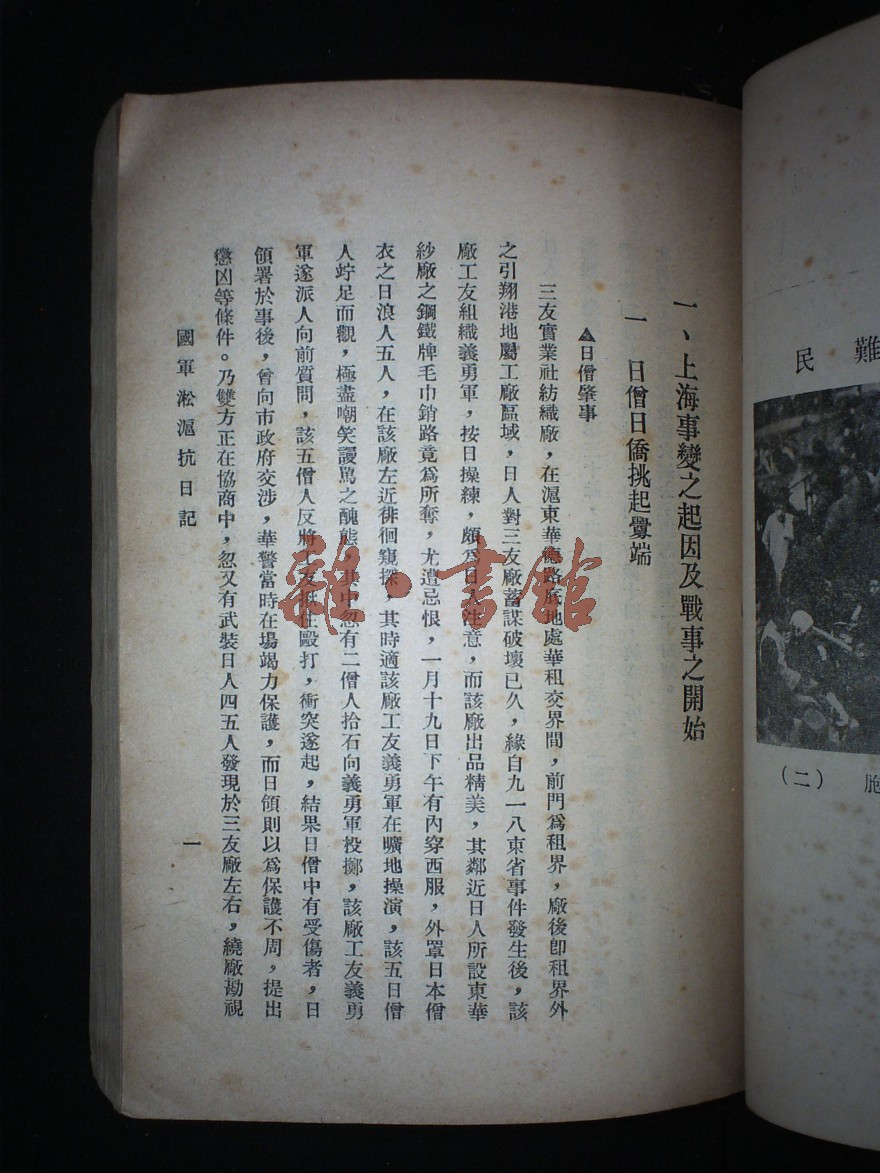 一、上海事變之起因及戰事之開始
一　日僧日僑挑起釁端
▲日僧肇事
三友實業社紡織廠，在滬東華德路底地處華租交界間，前門爲租界，廠後卽租界外
之引翔港地屬工廠區域，日人對三友廠蓄謀破壞已久，緣自九一八東省事件發生後，該
廠工友組織義勇軍，按日操練，頗爲日人注意，而該廠出品精美，其鄰近日人所設東華
紗廠之鋼鐵牌毛巾銷路竟爲所奪，尤遭忌恨，一月十九日下午有內穿西服，外罩日本僧
衣之日浪人五人，在該廠左近徘徊窺探，其時適該廠工友義勇軍在曠地操演，該五日僧
人竚足而觀，極盡嘲笑謾駡之醜態，其中忽有二僧人拾石向義勇軍投擲，該廠工友義勇
軍遂派人向前質問，該五僧人反將工友抵住毆打，衝突遂起，結果日僧中有受傷者，日
領署於事後，曾向市政府交涉，華警當時在場竭力保護，而日領則以爲保護不周，提出
懲凶等條件。乃雙方正在協商中，忽又有武裝日人四五人發現於三友廠左右，繞廠勘視
國軍淞滬抗日記
一
難
民
胞
（二）
雜·書館